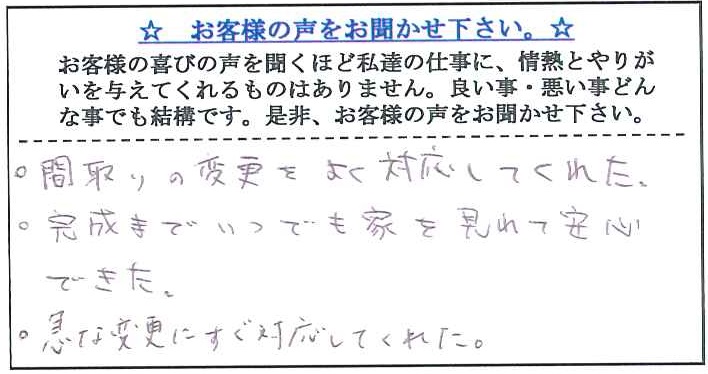 ☆ お客様の声をお聞かせ下さい。☆
お客様の喜びの声を聞くほど私達の仕事に、情熱とやりが
いを与えてくれるものはありません。良い事・悪い事どん
な事でも結構です。是非、お客様の声をお聞かせ下さい。
○ 間取りの変更をよく対応してくれた。
○ 完成までいつでも家を見れて安心
できた。
○ 急な変更にすぐ対応してくれた。